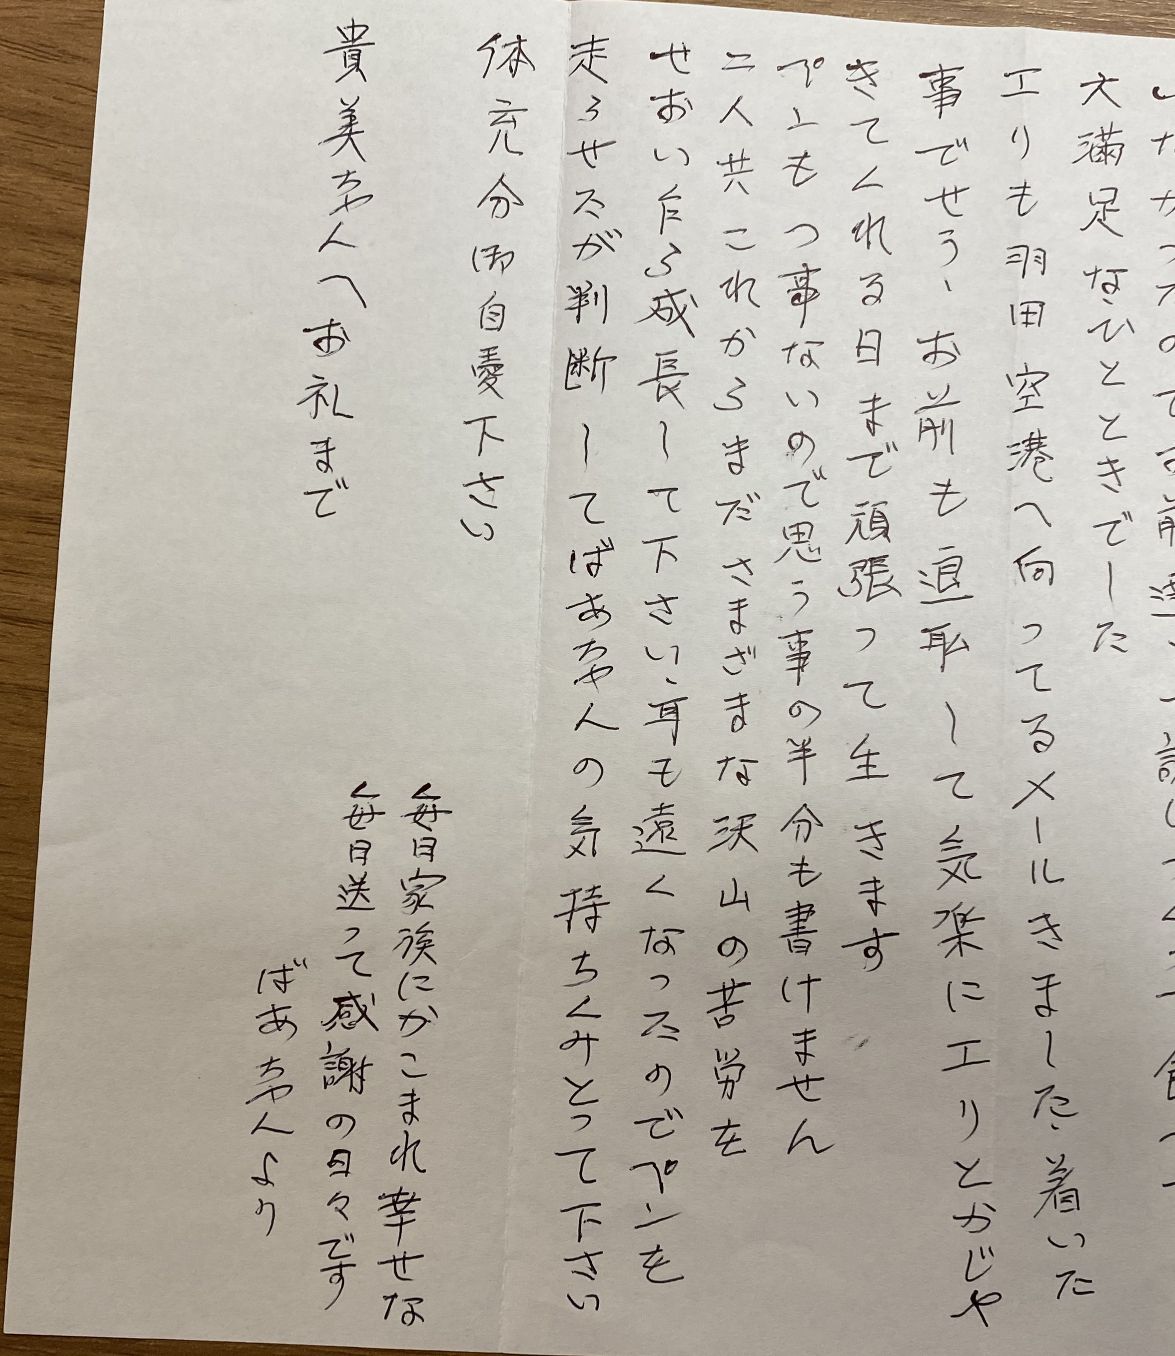 大満足なひとときでした
エリも羽田空港へ向ってるメールきました、着いた
事でせう、お前も退恥して気楽にエリとかじや
きてくれる日まで頑張って生きます
ペンもつ事ないので思う事の半分も書けません
二人共これからまださまざまな沢山の苦労を
せおい乍ら成長して下さい、耳も遠くなったのでペンを
走らせたが判断してばあちゃんの気持ちくみとって下さい
体充分御自愛下さい
貴美ちゃんへお礼まで
毎日家族にかこまれ幸せな
毎日送って感謝の日々です
ばあちゃんより